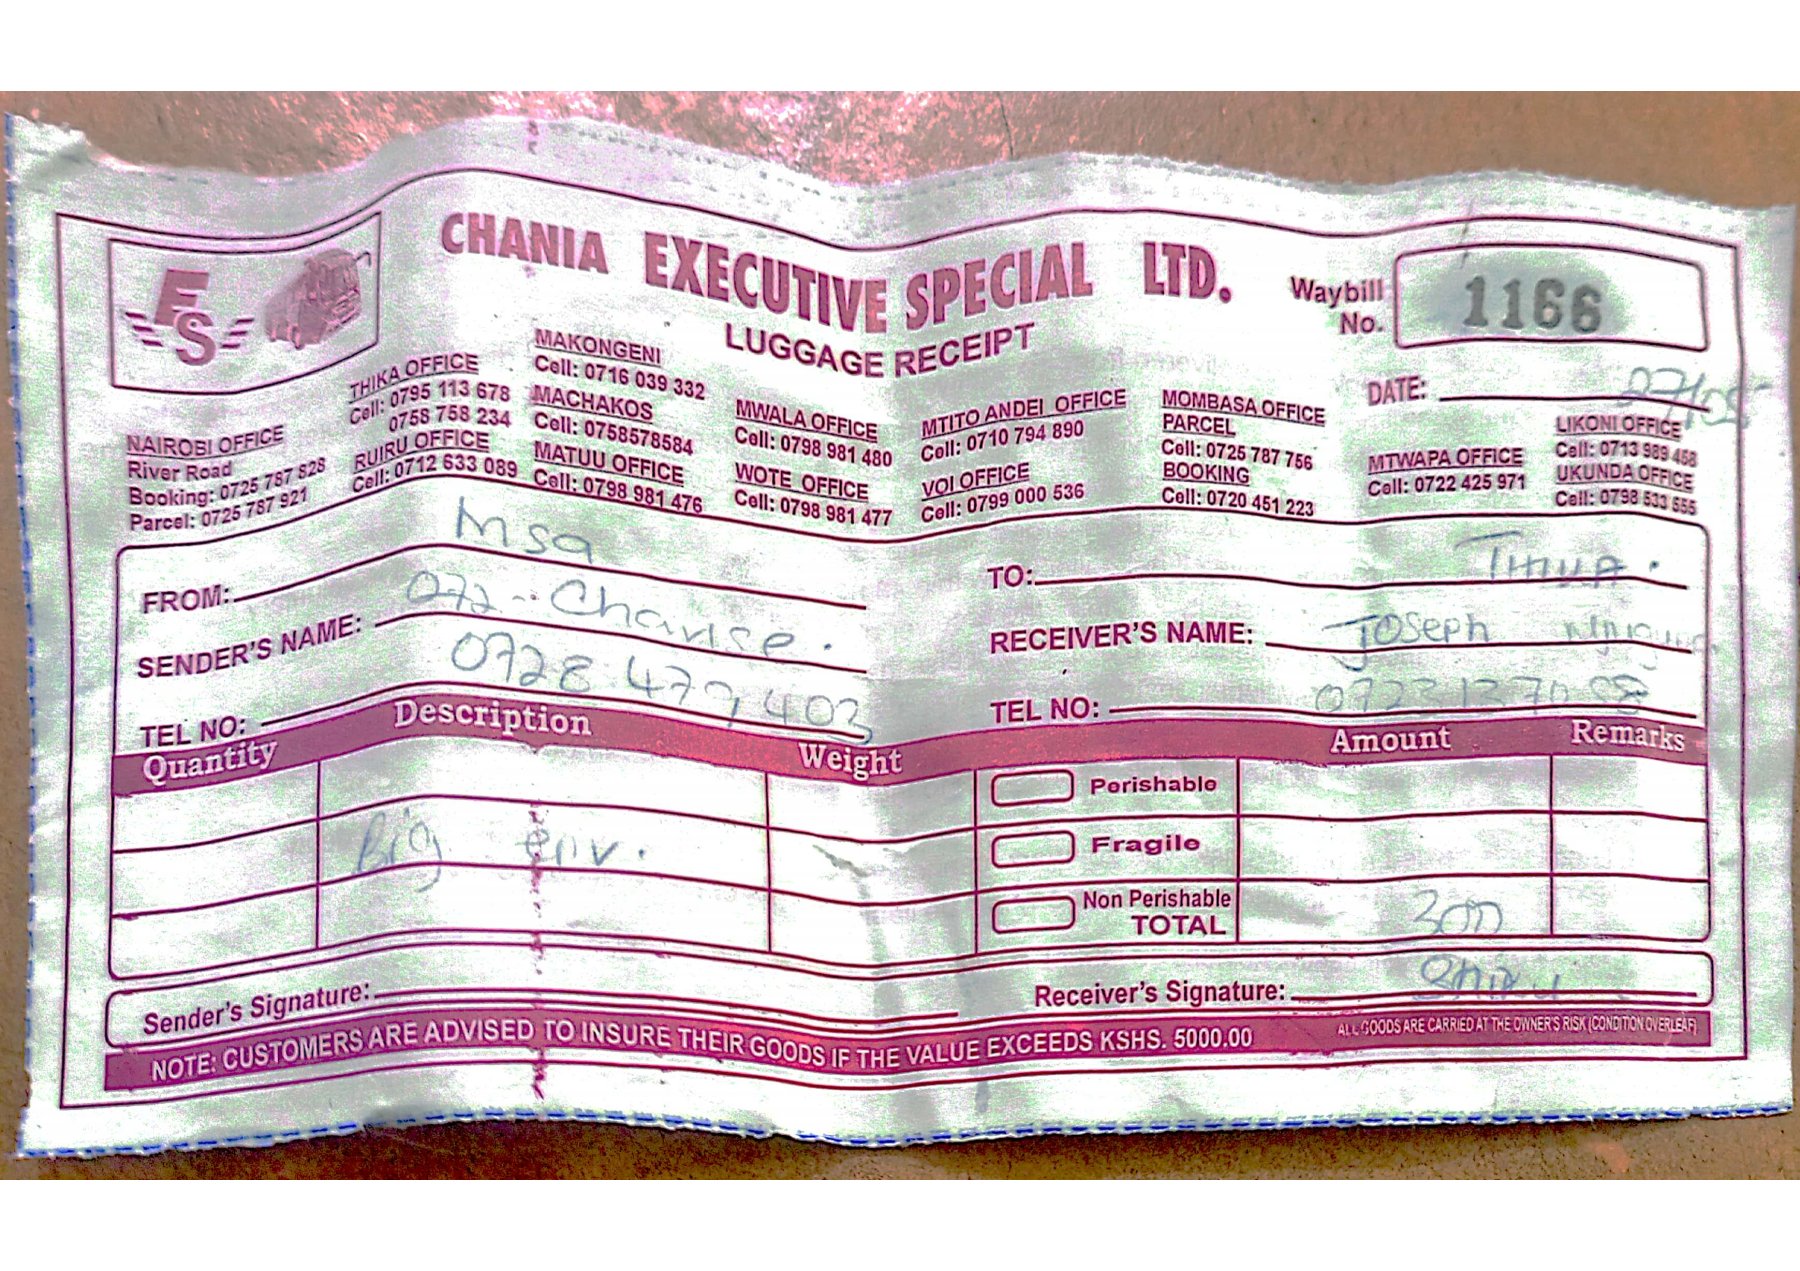 CHANIA EXECUTIVE SPECIAL LTD.
LUGGAGE RECEIPT
Waybill No. 1166
DATE: 27/05
FS
NAIROBI OFFICE
River Road
Booking: 0725 787 828
Parcel: 0725 787 921
THIKA OFFICE
Cell: 0795 113 678
0758 758 234
RUIRU OFFICE
Cell: 0712 633 089
MAKONGENI
Cell: 0716 039 332
MACHAKOS
Cell: 0758578584
MATUU OFFICE
Cell: 0798 981 476
MWALA OFFICE
Cell: 0798 981 480
WOTE OFFICE
Cell: 0798 981 477
MTITO ANDEI OFFICE
Cell: 0710 794 890
VOI OFFICE
Cell: 0799 000 536
MOMBASA OFFICE
PARCEL
Cell: 0725 787 756
BOOKING
Cell: 0720 451 223
MTWAPA OFFICE
Cell: 0722 425 971
LIKONI OFFICE
Cell: 0713 989 458
UKUNDA OFFICE
Cell: 0798 533 555
FROM: Msa
TO: THIKA.
SENDER'S NAME: 072-Charise.
RECEIVER'S NAME: Joseph
TEL NO: 0728 477 403
TEL NO:
Quantity Description Weight Amount Remarks
Perishable
Big env. Fragile
Non Perishable
TOTAL 300
Sender's Signature:
Receiver's Signature:
NOTE: CUSTOMERS ARE ADVISED TO INSURE THEIR GOODS IF THE VALUE EXCEEDS KSHS. 5000.00
ALL GOODS ARE CARRIED AT THE OWNER'S RISK (CONDITION OVERLEAF)